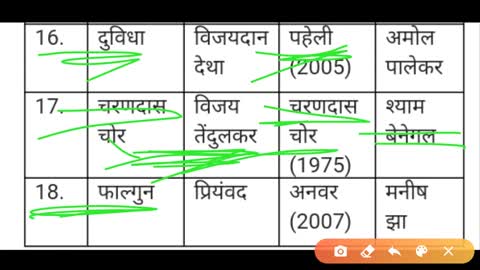 16. दुविधा विजयदान पहेली अमोल
देथा (2005) पालेकर
17. चरणदास विजय चरणदास श्याम
चोर तेंदुलकर चोर बेनेगल
(1975)
18. फाल्गुन प्रियंवद अनवर मनीष
(2007) झा